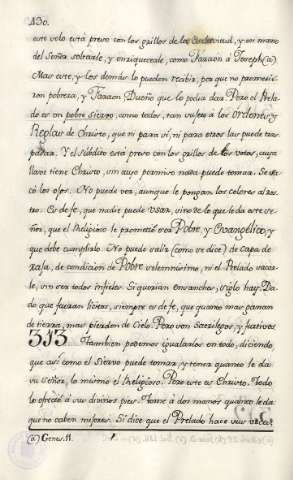 430.
este solo está preso con los grillos de la esclavitud, y en mano
del Señor soltarle, y enriquecerle, como Faraon à Joseph (a)
Mas este, y los demás lo pueden recibir, porque no prometie-
ron pobreza, y Faraon Dueño que lo podia dar. Pero el Prela-
do es un pobre siervo, como todos, tan sujeto à las ordenes, y
Reglas de Christo, que ni para sí, ni para otros las puede tras-
pasar. Y el subdito está preso con los grillos de los votos, cuya
llave tiene Christo, sin cuyo permiso nada puede tomar. Se sa-
có los ojos. No puede ver, aunque le pongan los colores al ros-
tro. Es de fe, que nadie puede usar, sino de lo que le da este se-
ñor, que el Religioso le prometió ser Pobre, y Evangelico, y
que debe cumplirlo. No puede valer (como se dice) de capa de
de condicion de Pobre ni el Prelado
le, sin ser todos infieles. Si querian ensanches, siglo hay. Da-
do que fueran licitas, siempre es de fe, que quanto mas ganan
de tierra, mas pierden de Cielo. Pero son sacrilegos, y furtivos
313 Tambien podemos igualarlos en todo, diciendo
que así como el siervo puede tomar, y tener quanto le da
su señor, lo mismo el Religioso. Pero este es Christo. Todo
lo ofreció à sus divinos pies. Tome à dos manos quanto le da
que no caben miserias. Si dice que el Prelado hace sus veces
(a) Genes. 41.